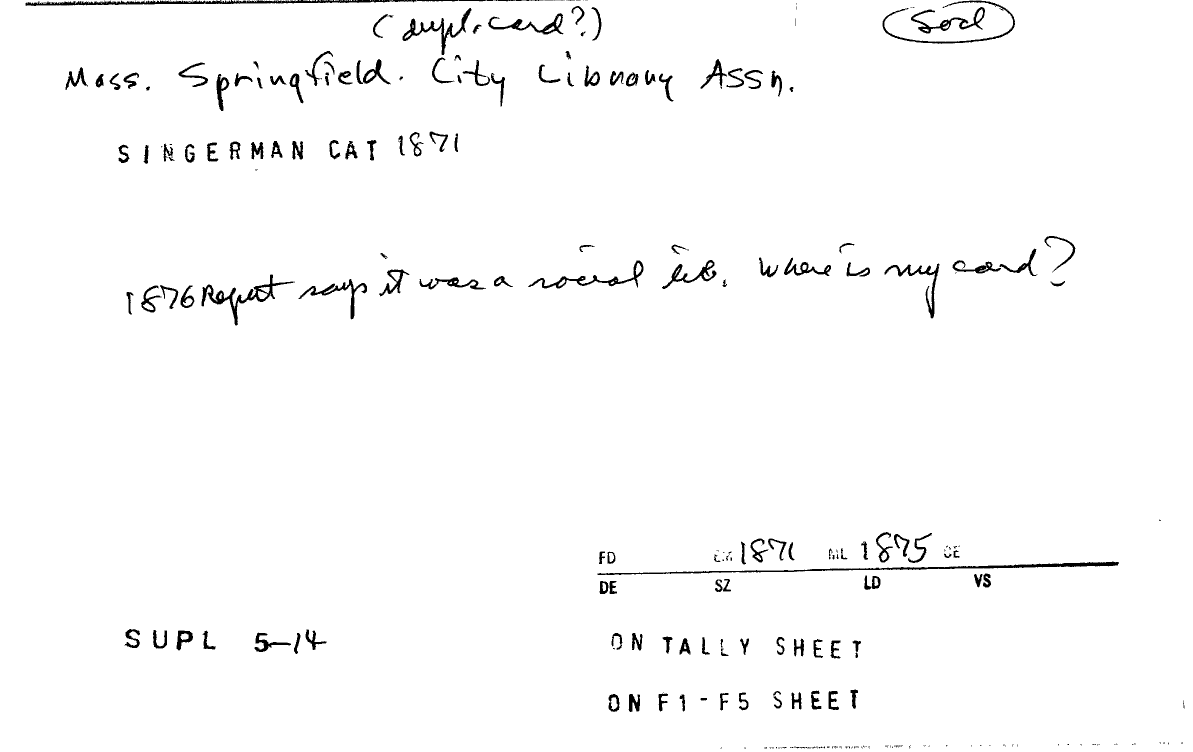 (dupl. card?) Socl
Mass. Springfield. City Library Assn.
SINGERMAN CAT 1871
1876 Report says it was a social lib. Where is my card?
FD EM 1871 ML 1875 CE
DE SZ LD VS
SUPL 5-14 ON TALLY SHEET
ON F1-F5 SHEET